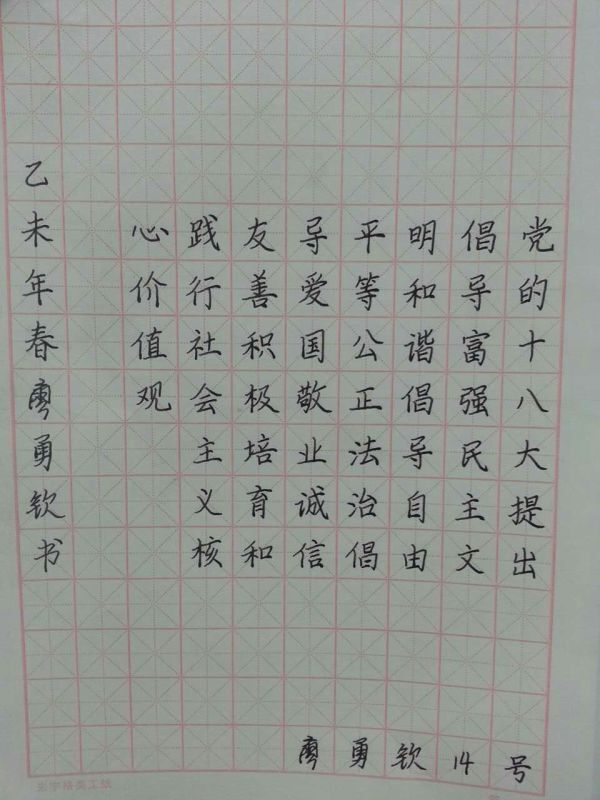 党的十八大提出
倡导富强民主文
明和谐倡导自由
平等公正法治倡
导爱国敬业诚信
友善积极培育和
践行社会主义核
心价值观
乙未年春廖勇钦书
廖勇钦14号